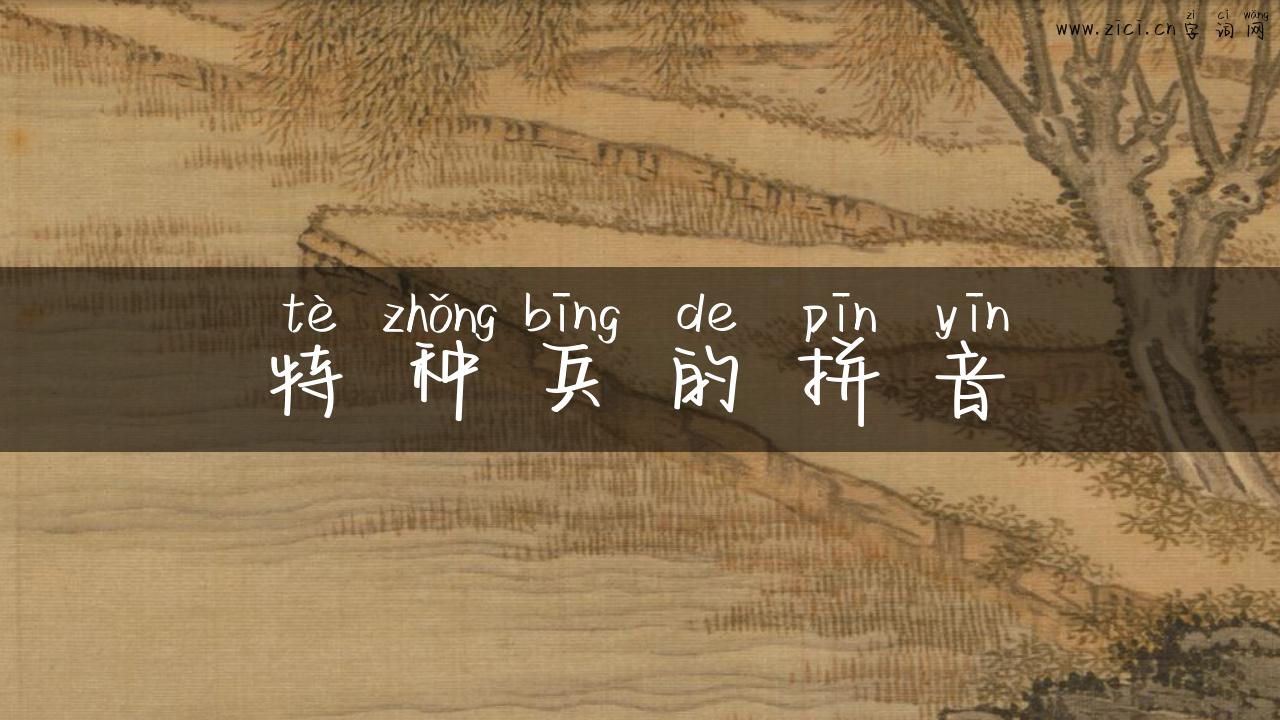 zì cí wǎng
www.zici.cn字词网
tè zhǒng bīng de pīn yīn
特种兵的拼音